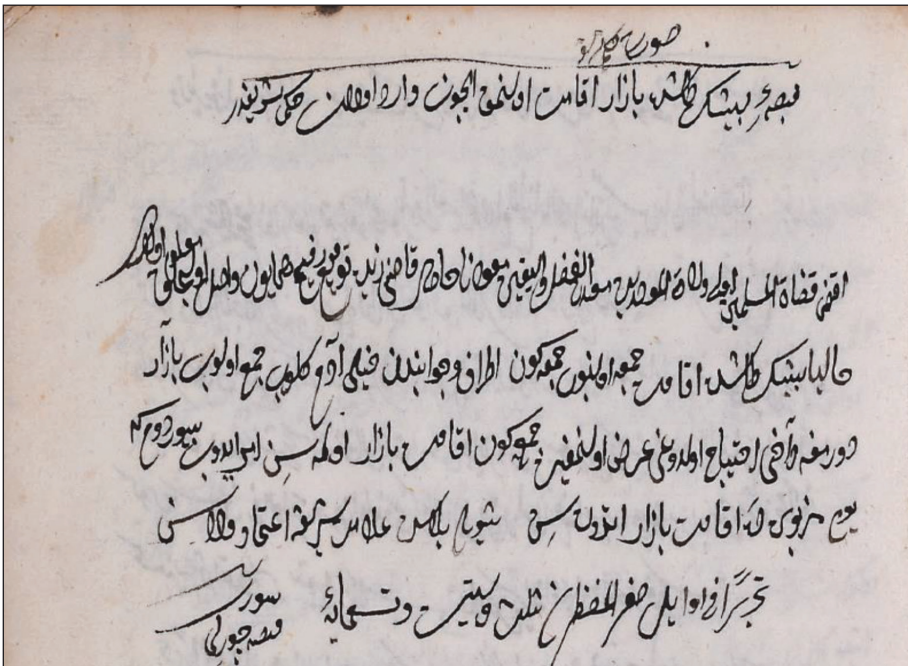 صورت
قصبۀ بشكطاشده بازار اقامت اولنمق ايچون وارد اولان حكم شريفدر
اقضى قضاة المسلمين اولى ولاة الموحدين معدن الفضل واليقين مولانا خاصلر قاضى زيد توقيع رفيع همايون واصل اولىجق معلوم اولا كه
حاليا بشكطاشده اقامت جمعه اولنوب جمعه كون اطراف وجوانبدن خيلى آدم كلوب جمع اولوب بازار
دورمغه دآخى احتياج اولدوغى عرض اولنمغين جمعه كون اقامت بازار اولماسن امر ايدوب بيوردوم كه
يوم مزبورده اقامت بازار اتدوره سن شويله بلاسن علامت شريفه اعتماد قلاسن
تحريرًا فى اوايل صفر المظفر سنه ثلث وستين وتسعمايه
صورت